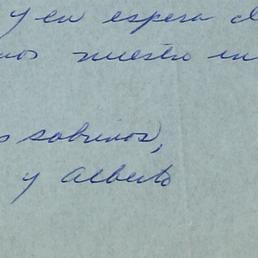 y en espera d
nos nuestro en
s sobrinos,
y Alberto